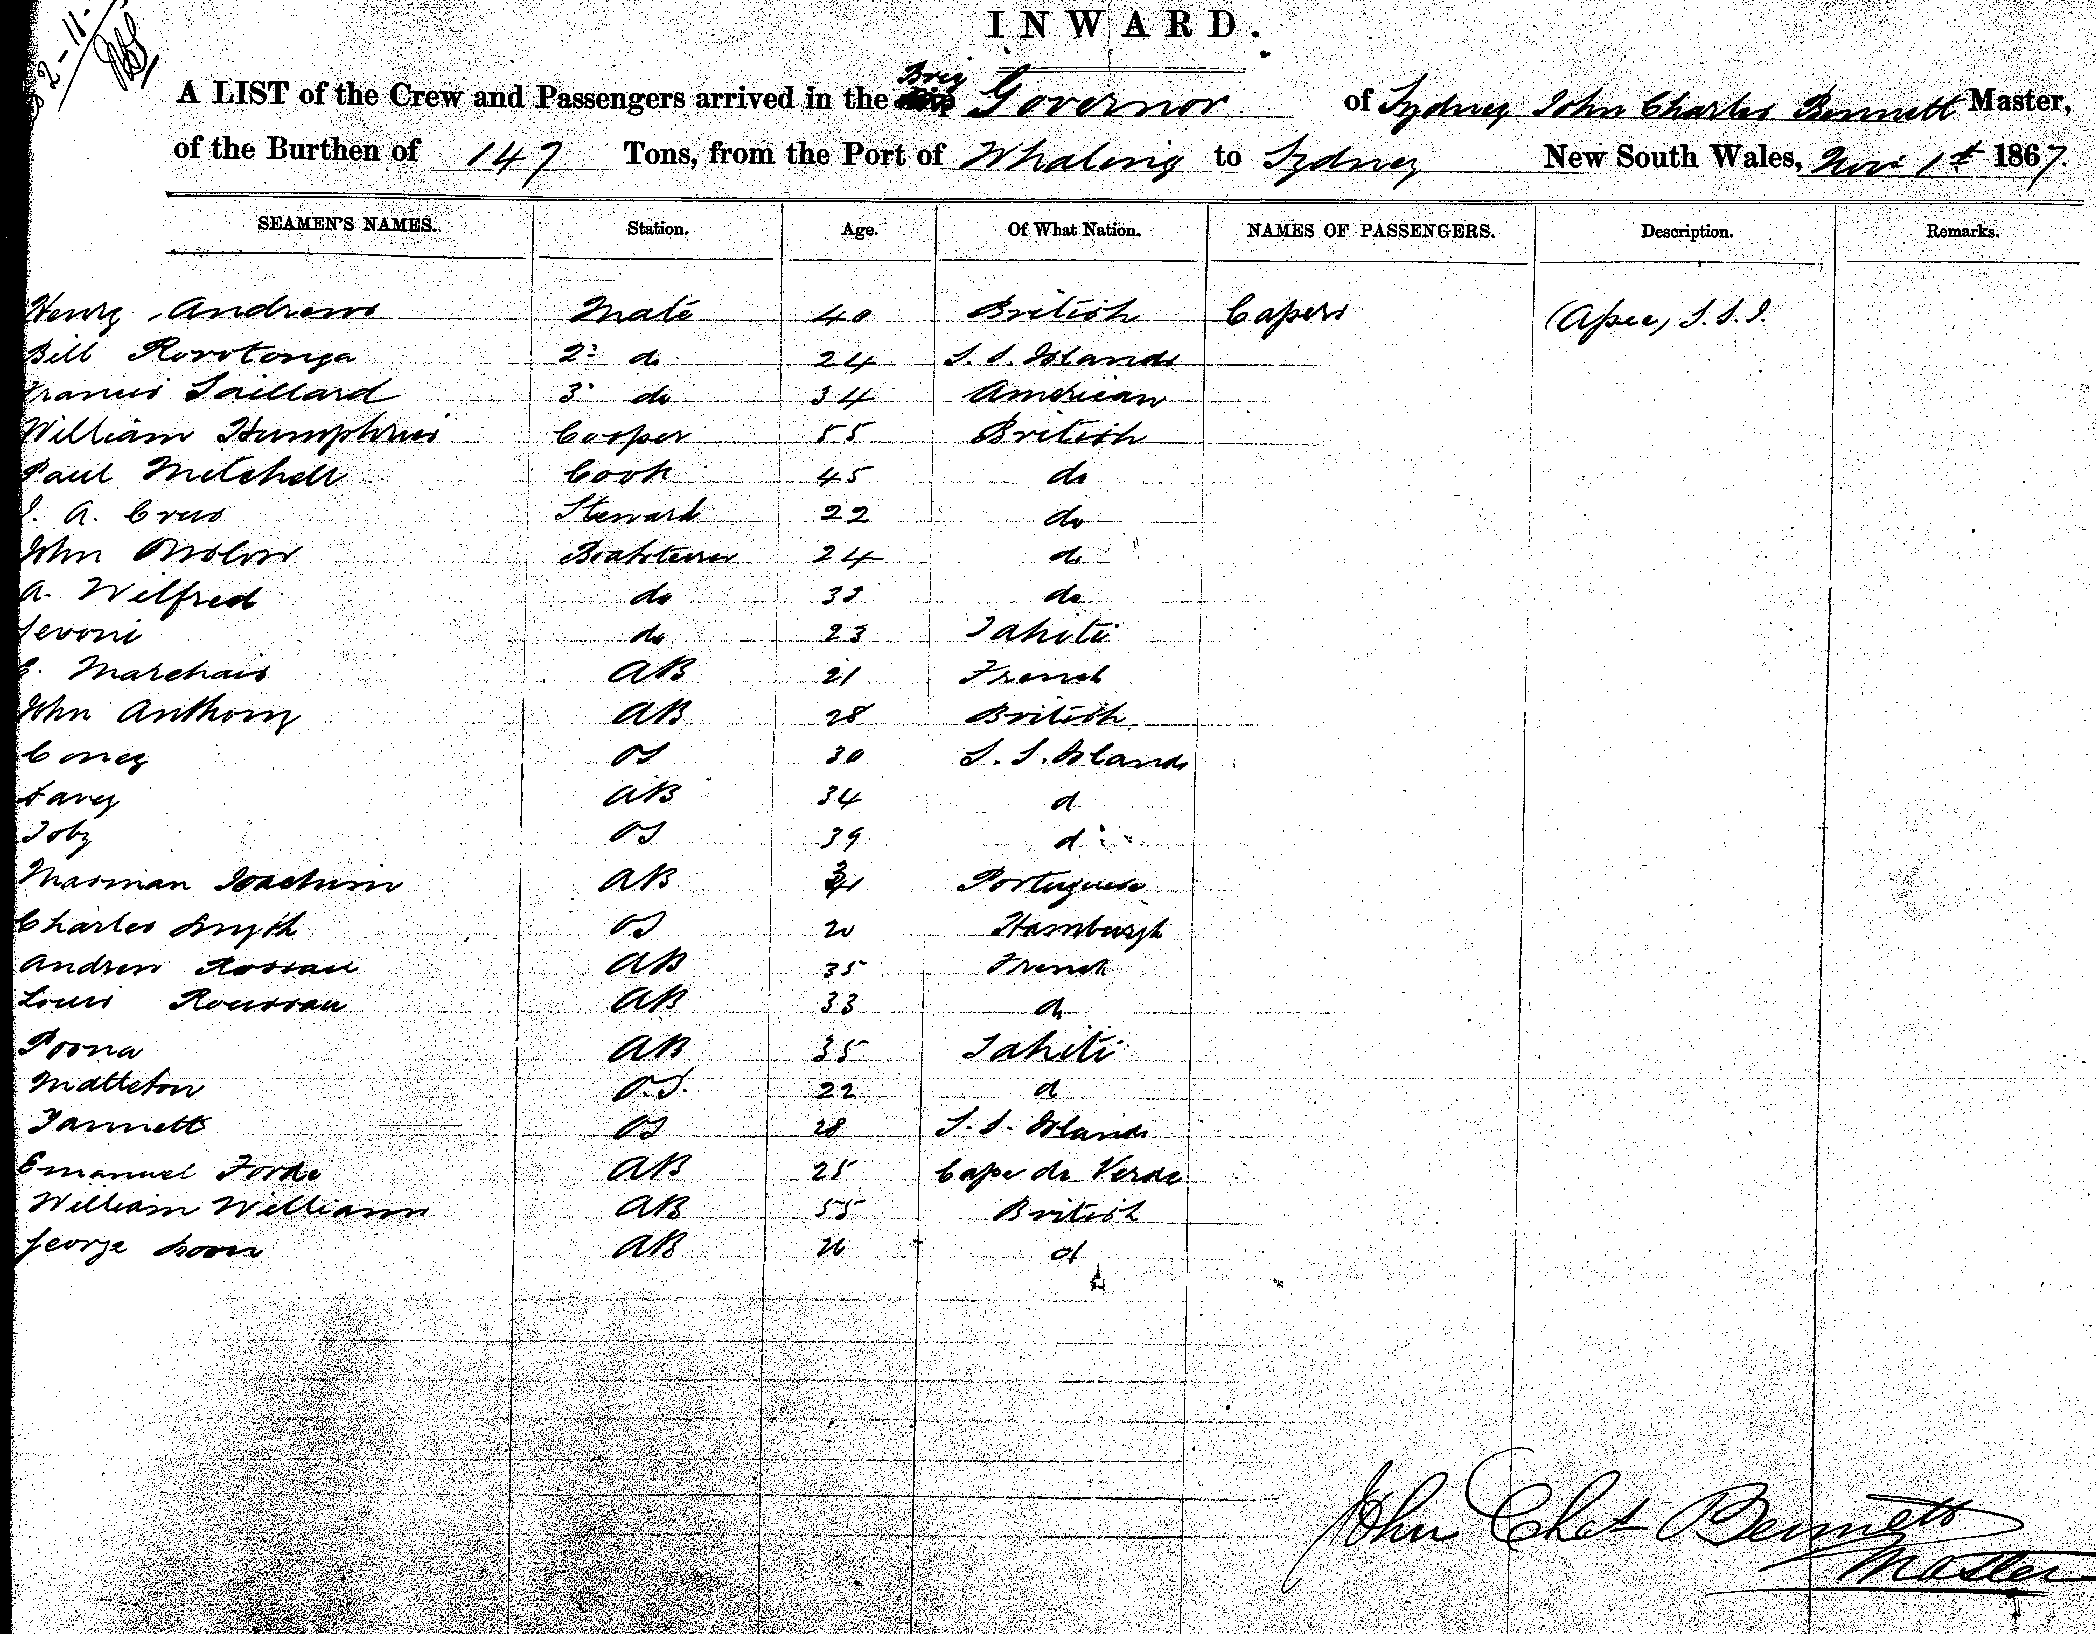 INWARD.
A LIST of the Crew and Passengers arrived in the Brig Governor of Sydney John Charles Bennett Master,
of the Burthen of 147 Tons, from the Port of Whaling to Sydney New South Wales, Nov 1st 1867.
SEAMEN'S NAMES. Station. Age. Of What Nation. NAMES OF PASSENGERS. Description. Remarks.
Henry Andrews Mate 40 British Capers
Bill Rorotonga 2d do 24 S. S. Islands
Francis Saillard 3 do 34 American
William Humphries Cooper 55 British
Paul Mitchell Cook 45 do
J. A. Crus Steward 22 do
John Onslow Boatsteerer 24 do
A. Wilfred do 33 do
do 23 Tahiti
E. Marchais AB 21 French
John Anthony AB 28 British
Coney OS 30 S. S. Islands
Davey AB 34 d
Toby OS 39 d
Joachim AB Portuguese
Charles Smyth OS 20 Hamburgh
Andrew AB 35 French
Louis Roussau AB 33 do
Poona AB 35 Tahiti
Matteton O.S. 22 d
OS 28 S. S. Islands
Emanuel Forde AB 25 Cape de Verde
William Williams AB 55 British
George AB 26 d
John Chas Bennett
Master